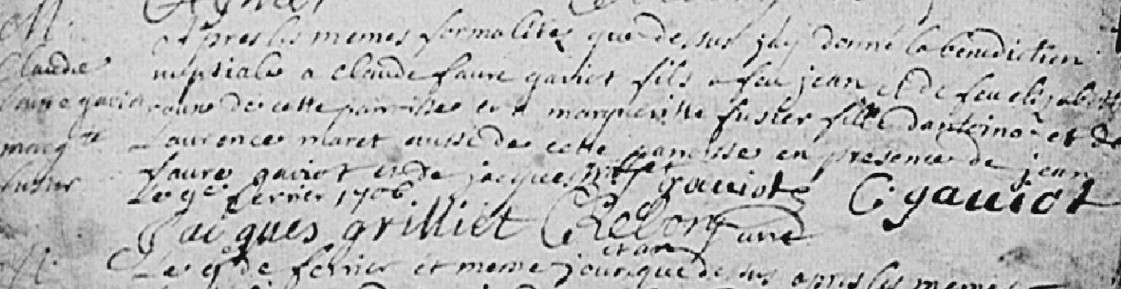 M.
Claude
faure gaviot
marg.tte
fuster
Apres les memes formalites que dessus jay donné la benediction
nuptiale a claude faure gaviot fils a feu jean et de feu elizabett
faure de cette parroisse et a margueritte fuster fille dantoine et de
Laurence maret aussi de cette parroisse en presence de jean
faure gaviot et de jacques grilliet
Le 9e fevrier 1706 gaviot C gauiot
Jacques grilliet C Rebon curé
M. Le 9e de fevrier et meme jour que dessus apres les memes